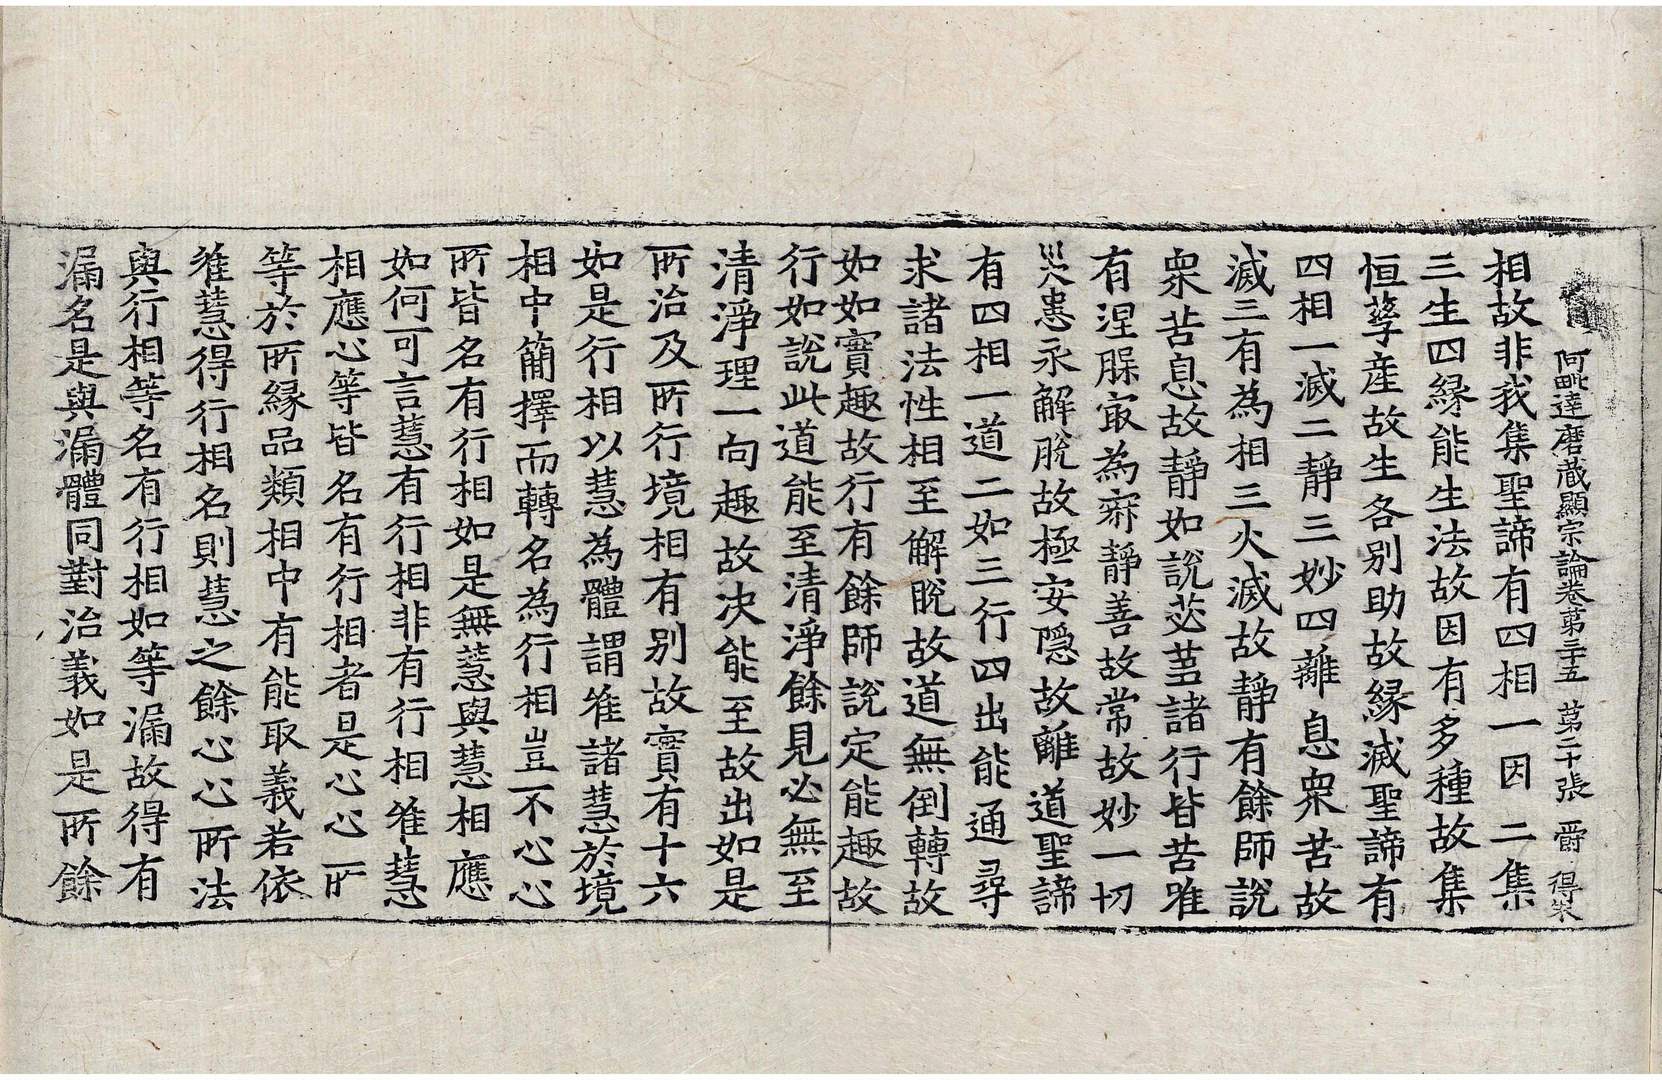 阿毗達磨藏顯宗論卷第三十五 第二十張 爵 得朱
相故非我集聖諦有四相一因二集
三生四緣能生法故因有多種故集
恒孳產故生各別助故緣滅聖諦有
四相一滅二靜三妙四離息衆苦故
滅三有為相三火滅故靜有餘師說
衆苦息故靜如說苾芻諸行皆苦唯
有涅槃寂為寂靜善故常故妙一切
災患永解脫故極安隱故離道聖諦
有四相一道二如三行四出能通尋
求諸法性相至解脫故道無倒轉故
如如實趣故行有餘師說定能趣故
行如說此道能至清淨餘見必無至
清淨理一向趣故決能至故出如是
所治及所行境相有別故實有十六
如是行相以慧為體謂唯諸慧於境
相中簡擇而轉名為行相豈不心心
所皆名有行相如是無慧與慧相應
如何可言慧有行相非有行相唯慧
相應心等皆名有行相者是心心所
等於所緣品類相中有能取義若依
唯慧得行相名則慧之餘心心所法
與行相等名有行相如等漏故得有
漏名是與漏體同對治義如是所餘